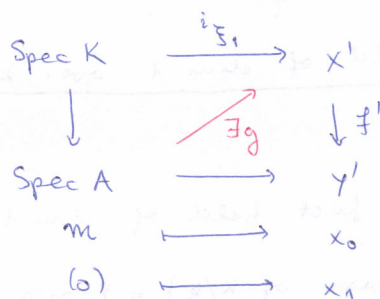 Spec K i_{ξ_1} → X'
↓ ↗ ∃g ↓ f'
Spec A → Y'
m ↦ x_0
(0) ↦ x_1